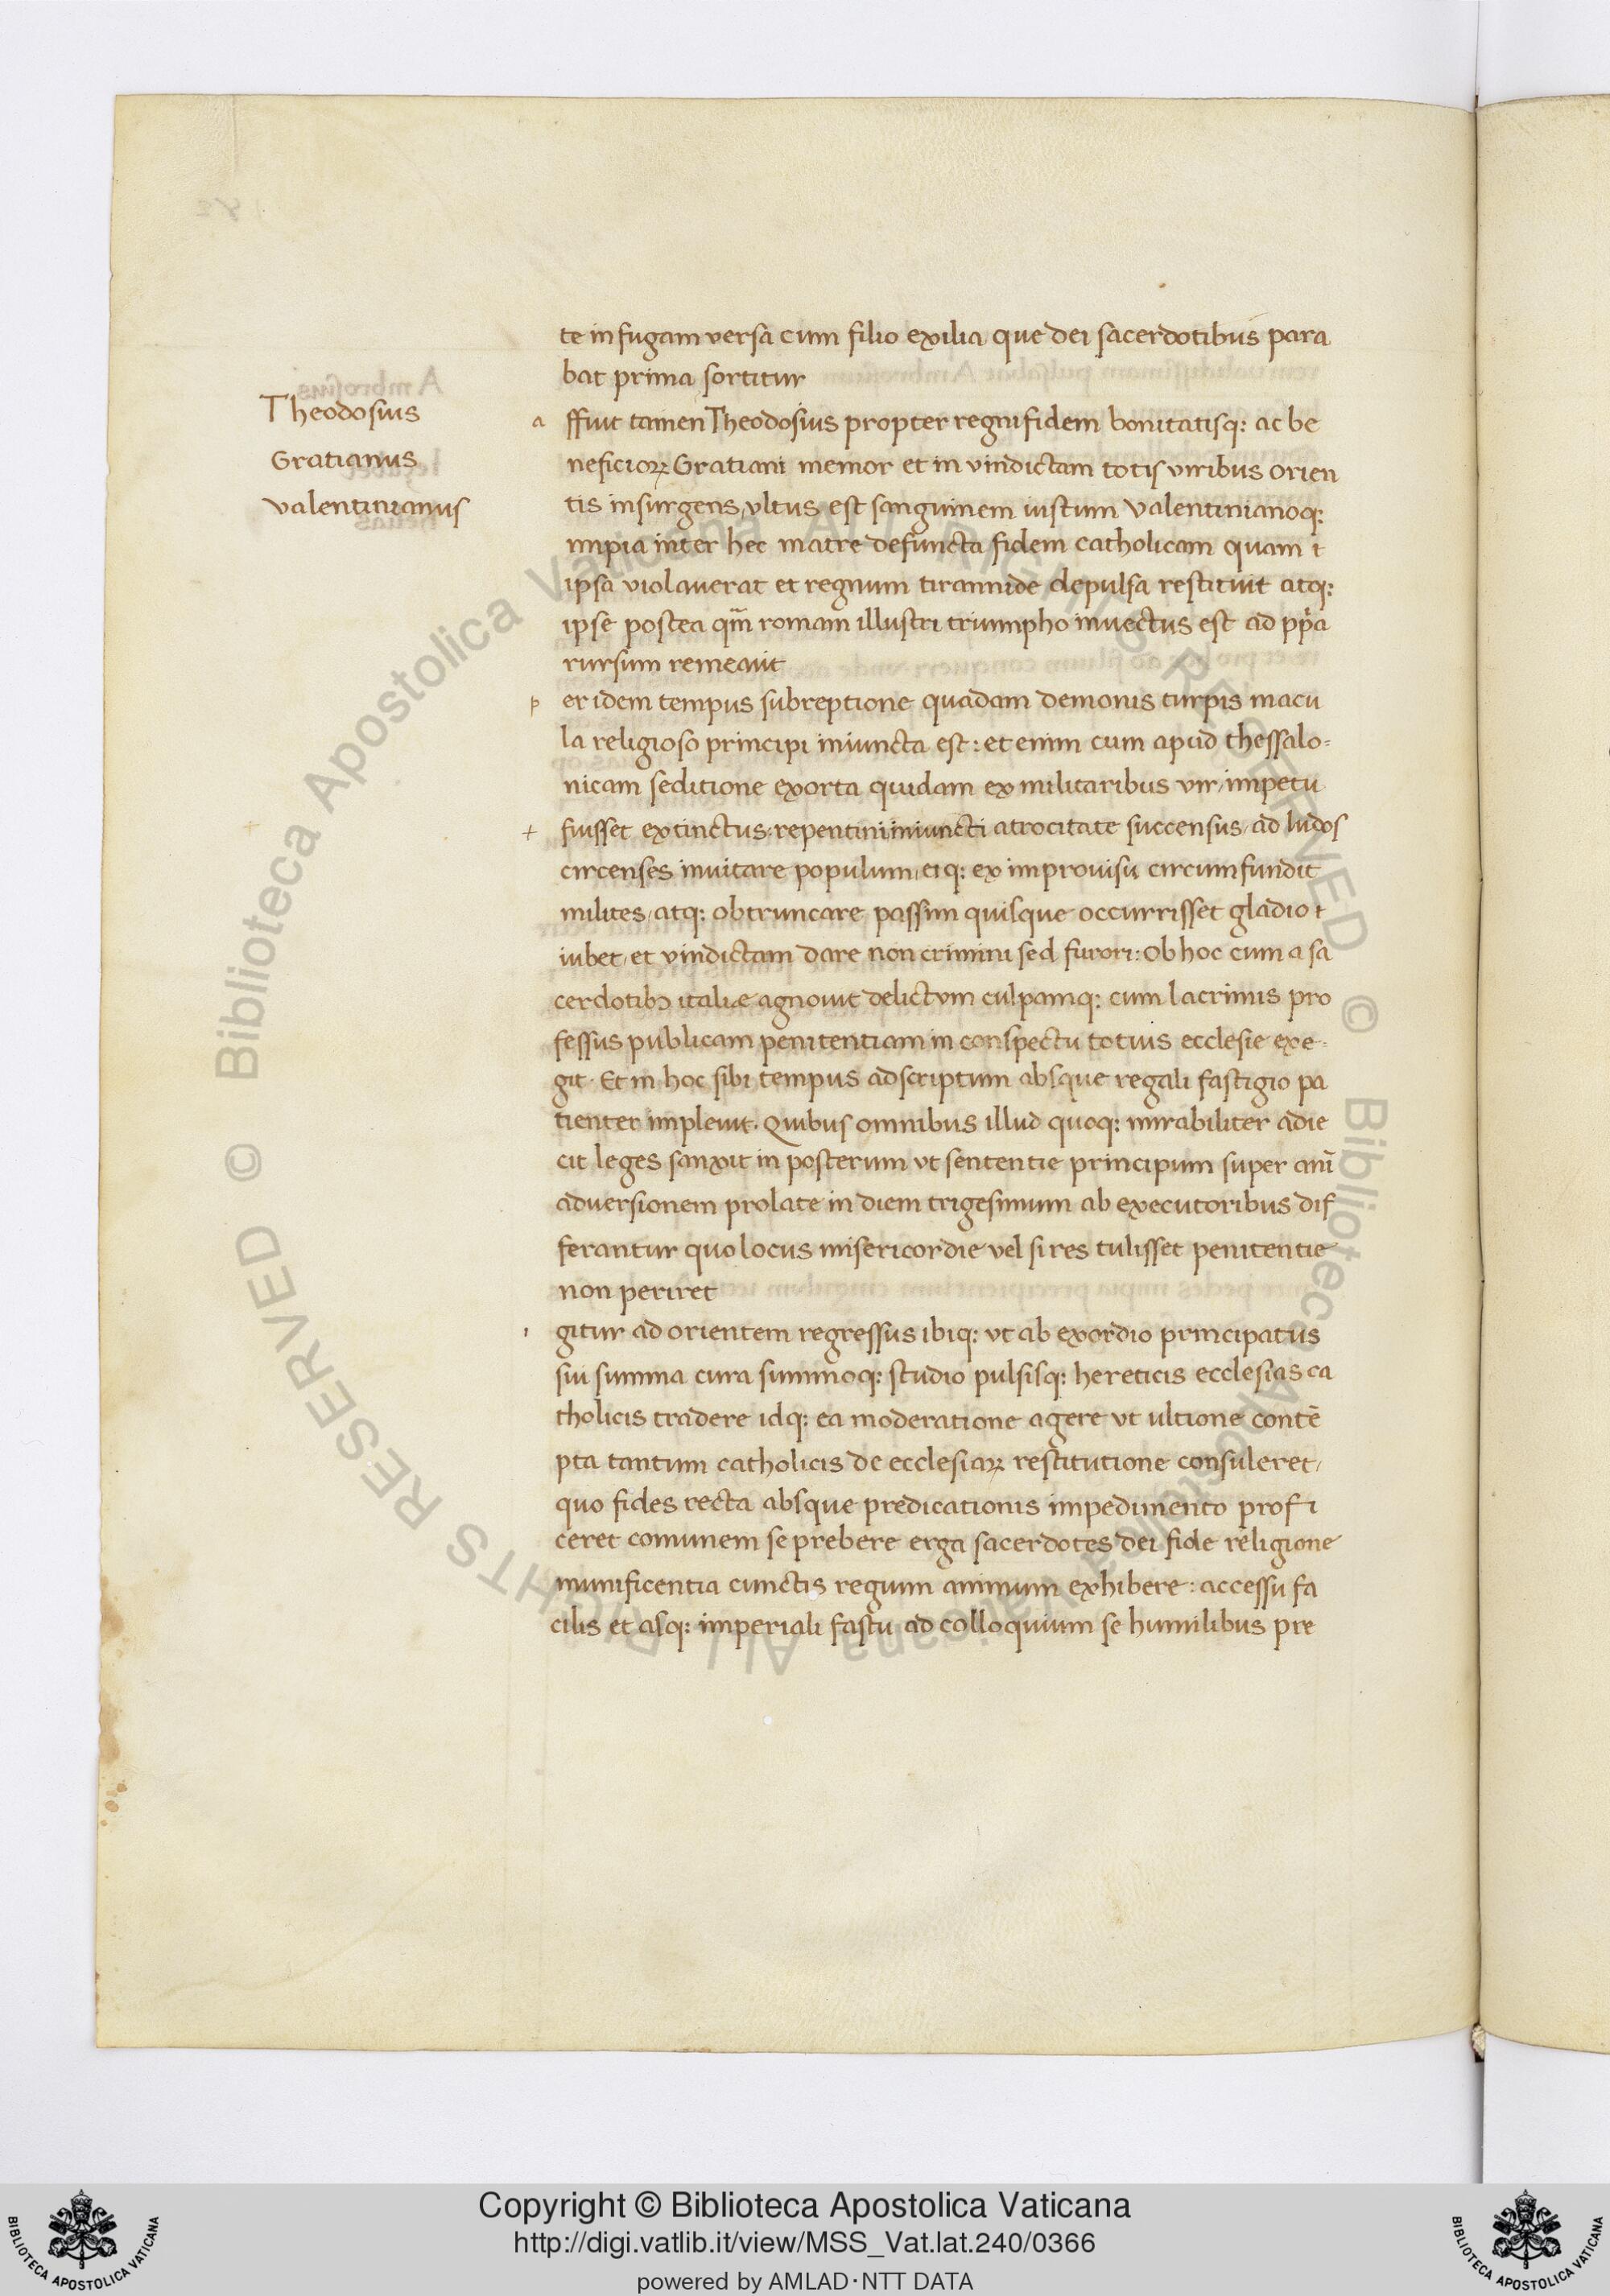 te in fugam versa cum filio exilia que dei sacerdotibus para
bat prima sortitur
Theodosius
Gratianus
valentinianus
a ffuit tamen Theodosius propter regni fidem bonitatisq: ac be
neficioꝝ Gratiani memor et in vindictam totis viribus orien
tis insurgens, vltus est sanguinem iustum valentinianoq:
impia inter hec matre defuncta fidem catholicam quam i
ipsa violauerat et regnum tirannide depulsa restituit atq:
ipse postea qm̄ romam illustri triumpho inuectus est ad ppa
rursum remeauit
p er idem tempus subreptione quadam demonis turpis macu
la religioso principi iniuncta est: et enim cum apud thessalo-
nicam seditione exorta quidam ex militaribus vir, impetu
+ fuisset extinctus: repentini iniuncti atrocitate succensus, ad ludos
circenses inuitare populum, eiq: ex improuisu circumfundit
milites, atq: obtruncare passim quisque occurrisset gladio i
iubet, et vindictam dare non crimini sed furori: Ob hoc cum a sa
cerdotibꝫ italiæ agnouit delictum culpamq: cum lacrimis pro
fessus publicam penitentiam in conspectu totius ecclesie exe-
git. Et in hoc sibi tempus adscriptum absque regali fastigio pa
tienter impleuit. Quibus omnibus illud quoq: mirabiliter adie
cit leges sanxit in posterum vt sententie principum super anī
aduersionem prolate in diem trigesimum ab executoribus dif
ferantur quo locus misericordie vel si res tulisset penitentie
non periret
i gitur ad orientem regressus ibiq: vt ab exordio principatus
sui summa cura summoq: studio pulsisq: hereticis ecclesias ca
tholicis tradere idq: ea moderatione agere vt ultione contē
pta tantum catholicis de ecclesiaꝝ restitutione consuleret,
quo fides recta absque predicationis impedimento profi
ceret comunem se prebere erga sacerdotes dei fide religione
munificentia cunctis regium animum exhibere: accessu fa
cilis et asq: imperiali fastu ad colloquium se humilibus pre
© Biblioteca Apostolica Vaticana ALL RIGHTS RESERVED © Biblioteca Apostolica Vaticana ALL RIGHTS RESERVED
Copyright © Biblioteca Apostolica Vaticana
http://digi.vatlib.it/view/MSS_Vat.lat.240/0366
powered by AMLAD·NTT DATA
BIBLIOTECA APOSTOLICA VATICANA
BIBLIOTECA APOSTOLICA VATICANA